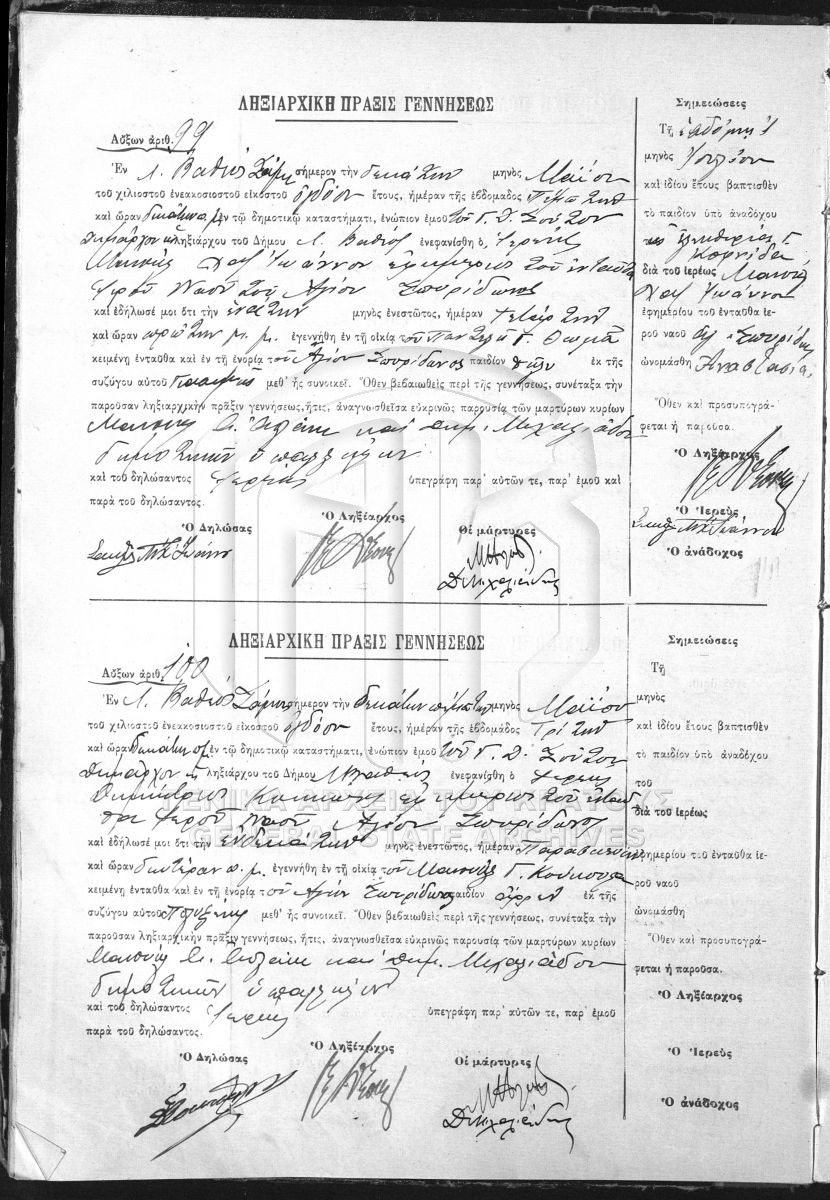 ΛΗΞΙΑΡΧΙΚΗ ΠΡΑΞΙΣ ΓΕΝΝΗΣΕΩΣ
Αὔξων ἀριθ. 99
Ἐν Λ. Βαθέος Σάμου σήμερον τὴν δεκάτην μηνὸς Μαΐου
τοῦ χιλιοστοῦ ἐνεακοσιοστοῦ εἰκοστοῦ ὀγδόου ἔτους, ἡμέραν τῆς ἑβδομάδος Πέμπτην
καὶ ὥραν δεκάτην π.μ. ἐν τῷ δημοτικῷ καταστήματι, ἐνώπιον ἐμοῦ τοῦ Γ. Δ. Σούτου
Δημάρχου καὶ ληξιάρχου τοῦ Δήμου Λ. Βαθέος ἐνεφανίσθη ὁ ἱερεὺς
Μανουὴλ Χατζ Ἰωάννου ἐφημέριος τοῦ ἐνταῦθα
ἱεροῦ Ναοῦ τοῦ Ἁγίου Σπυρίδωνος
καὶ ἐδήλωσέ μοι ὅτι τὴν ἐνάτην μηνὸς ἐνεστῶτος, ἡμέραν Τετάρτην
καὶ ὥραν πρώτην μ. μ. ἐγεννήθη ἐν τῇ οἰκίᾳ τοῦ Παντελῆ Γ. Θωμᾶ
κειμένῃ ἐνταῦθα καὶ ἐν τῇ ἐνορίᾳ τοῦ Ἁγίου Σπυρίδωνος παιδίον θῆλυ ἐκ τῆς
συζύγου αὐτοῦ μεθ᾽ ἧς συνοικεῖ. Ὅθεν βεβαιωθεὶς περὶ τῆς γεννήσεως, συνέταξα τὴν
παροῦσαν ληξιαρχικὴν πρᾶξιν γεννήσεως, ἥτις, ἀναγνωσθεῖσα εὐκρινῶς παρουσίᾳ τῶν μαρτύρων κυρίων
Μανουὴλ καὶ Δημ. Μιχαλιάδου
δημοτικῶν ὑπαλλήλων
καὶ τοῦ δηλώσαντος ἱερέως ὑπεγράφη παρ᾽ αὐτῶν τε, παρ᾽ ἐμοῦ καὶ
παρὰ τοῦ δηλώσαντος.
Ὁ Δηλώσας Ὁ Ληξίαρχος Οἱ μάρτυρες
Δ. Μιχαλιάδης
Σημειώσεις
Τῇ ἑβδόμῃ
μηνὸς Ἰουλίου
καὶ ἰδίου ἔτους βαπτισθὲν
τὸ παιδίον ὑπὸ ἀναδόχου
Ἐλευθερίας Γ.
διὰ τοῦ ἱερέως Μανουὴλ
Χατζ Ἰωάννου
ἐφημερίου τοῦ ἐνταῦθα ἱε-
ροῦ ναοῦ Ἁγ. Σπυρίδωνος
ὠνομάσθη Ἀναστασία.
Ὅθεν καὶ προσυπογρά-
φεται ἡ παροῦσα.
Ὁ Ληξίαρχος
Ὁ Ἱερεὺς
Ὁ ἀνάδοχος
ΛΗΞΙΑΡΧΙΚΗ ΠΡΑΞΙΣ ΓΕΝΝΗΣΕΩΣ
Αὔξων ἀριθ. 100
Ἐν Λ. Βαθέος Σάμου σήμερον τὴν δεκάτην πέμπτην μηνὸς Μαΐου
τοῦ χιλιοστοῦ ἐνεακοσιοστοῦ εἰκοστοῦ ὀγδόου ἔτους, ἡμέραν τῆς ἑβδομάδος Τρίτην
καὶ ὥραν δεκάτην π.μ. ἐν τῷ δημοτικῷ καταστήματι, ἐνώπιον ἐμοῦ τοῦ Γ. Δ. Σούτου
Δημάρχου καὶ ληξιάρχου τοῦ Δήμου Λ. Βαθέος ἐνεφανίσθη ὁ ἱερεὺς
ἐφημέριος τοῦ ἐνταῦ
θα ἱεροῦ ναοῦ Ἁγίου Σπυρίδωνος
καὶ ἐδήλωσέ μοι ὅτι τὴν ἑνδεκάτην μηνὸς ἐνεστῶτος, ἡμέραν Παρασκευὴν
καὶ ὥραν δευτέραν π. μ. ἐγεννήθη ἐν τῇ οἰκίᾳ τοῦ Μανουὴλ Γ.
κειμένῃ ἐνταῦθα καὶ ἐν τῇ ἐνορίᾳ τοῦ Ἁγίου Σπυρίδωνος παιδίον ἄρρεν ἐκ τῆς
συζύγου αὐτοῦ Πολυξένης μεθ᾽ ἧς συνοικεῖ. Ὅθεν βεβαιωθεὶς περὶ τῆς γεννήσεως, συνέταξα τὴν
παροῦσαν ληξιαρχικὴν πρᾶξιν γεννήσεως, ἥτις, ἀναγνωσθεῖσα εὐκρινῶς παρουσίᾳ τῶν μαρτύρων κυρίων
Μανουὴλ καὶ Δημ. Μιχαλιάδου
δημοτικῶν ὑπαλλήλων
καὶ τοῦ δηλώσαντος ἱερέως ὑπεγράφη παρ᾽ αὐτῶν τε, παρ᾽ ἐμοῦ
παρὰ τοῦ δηλώσαντος.
Ὁ Δηλώσας Ὁ Ληξίαρχος Οἱ μάρτυρες
Δ. Μιχαλιάδης
Σημειώσεις
Τῇ
μηνὸς
καὶ ἰδίου ἔτους βαπτισθὲν
τὸ παιδίον ὑπὸ ἀναδόχου
τοῦ
διὰ τοῦ ἱερέως
ἐφημερίου τοῦ ἐνταῦθα ἱε-
ροῦ ναοῦ
ὠνομάσθη
Ὅθεν καὶ προσυπογρά-
φεται ἡ παροῦσα.
Ὁ Ληξίαρχος
Ὁ Ἱερεὺς
Ὁ ἀνάδοχος
ΓΕΝΙΚΑ ΑΡΧΕΙΑ ΤΟΥ ΚΡΑΤΟΥΣ
GENERAL STATE ARCHIVES